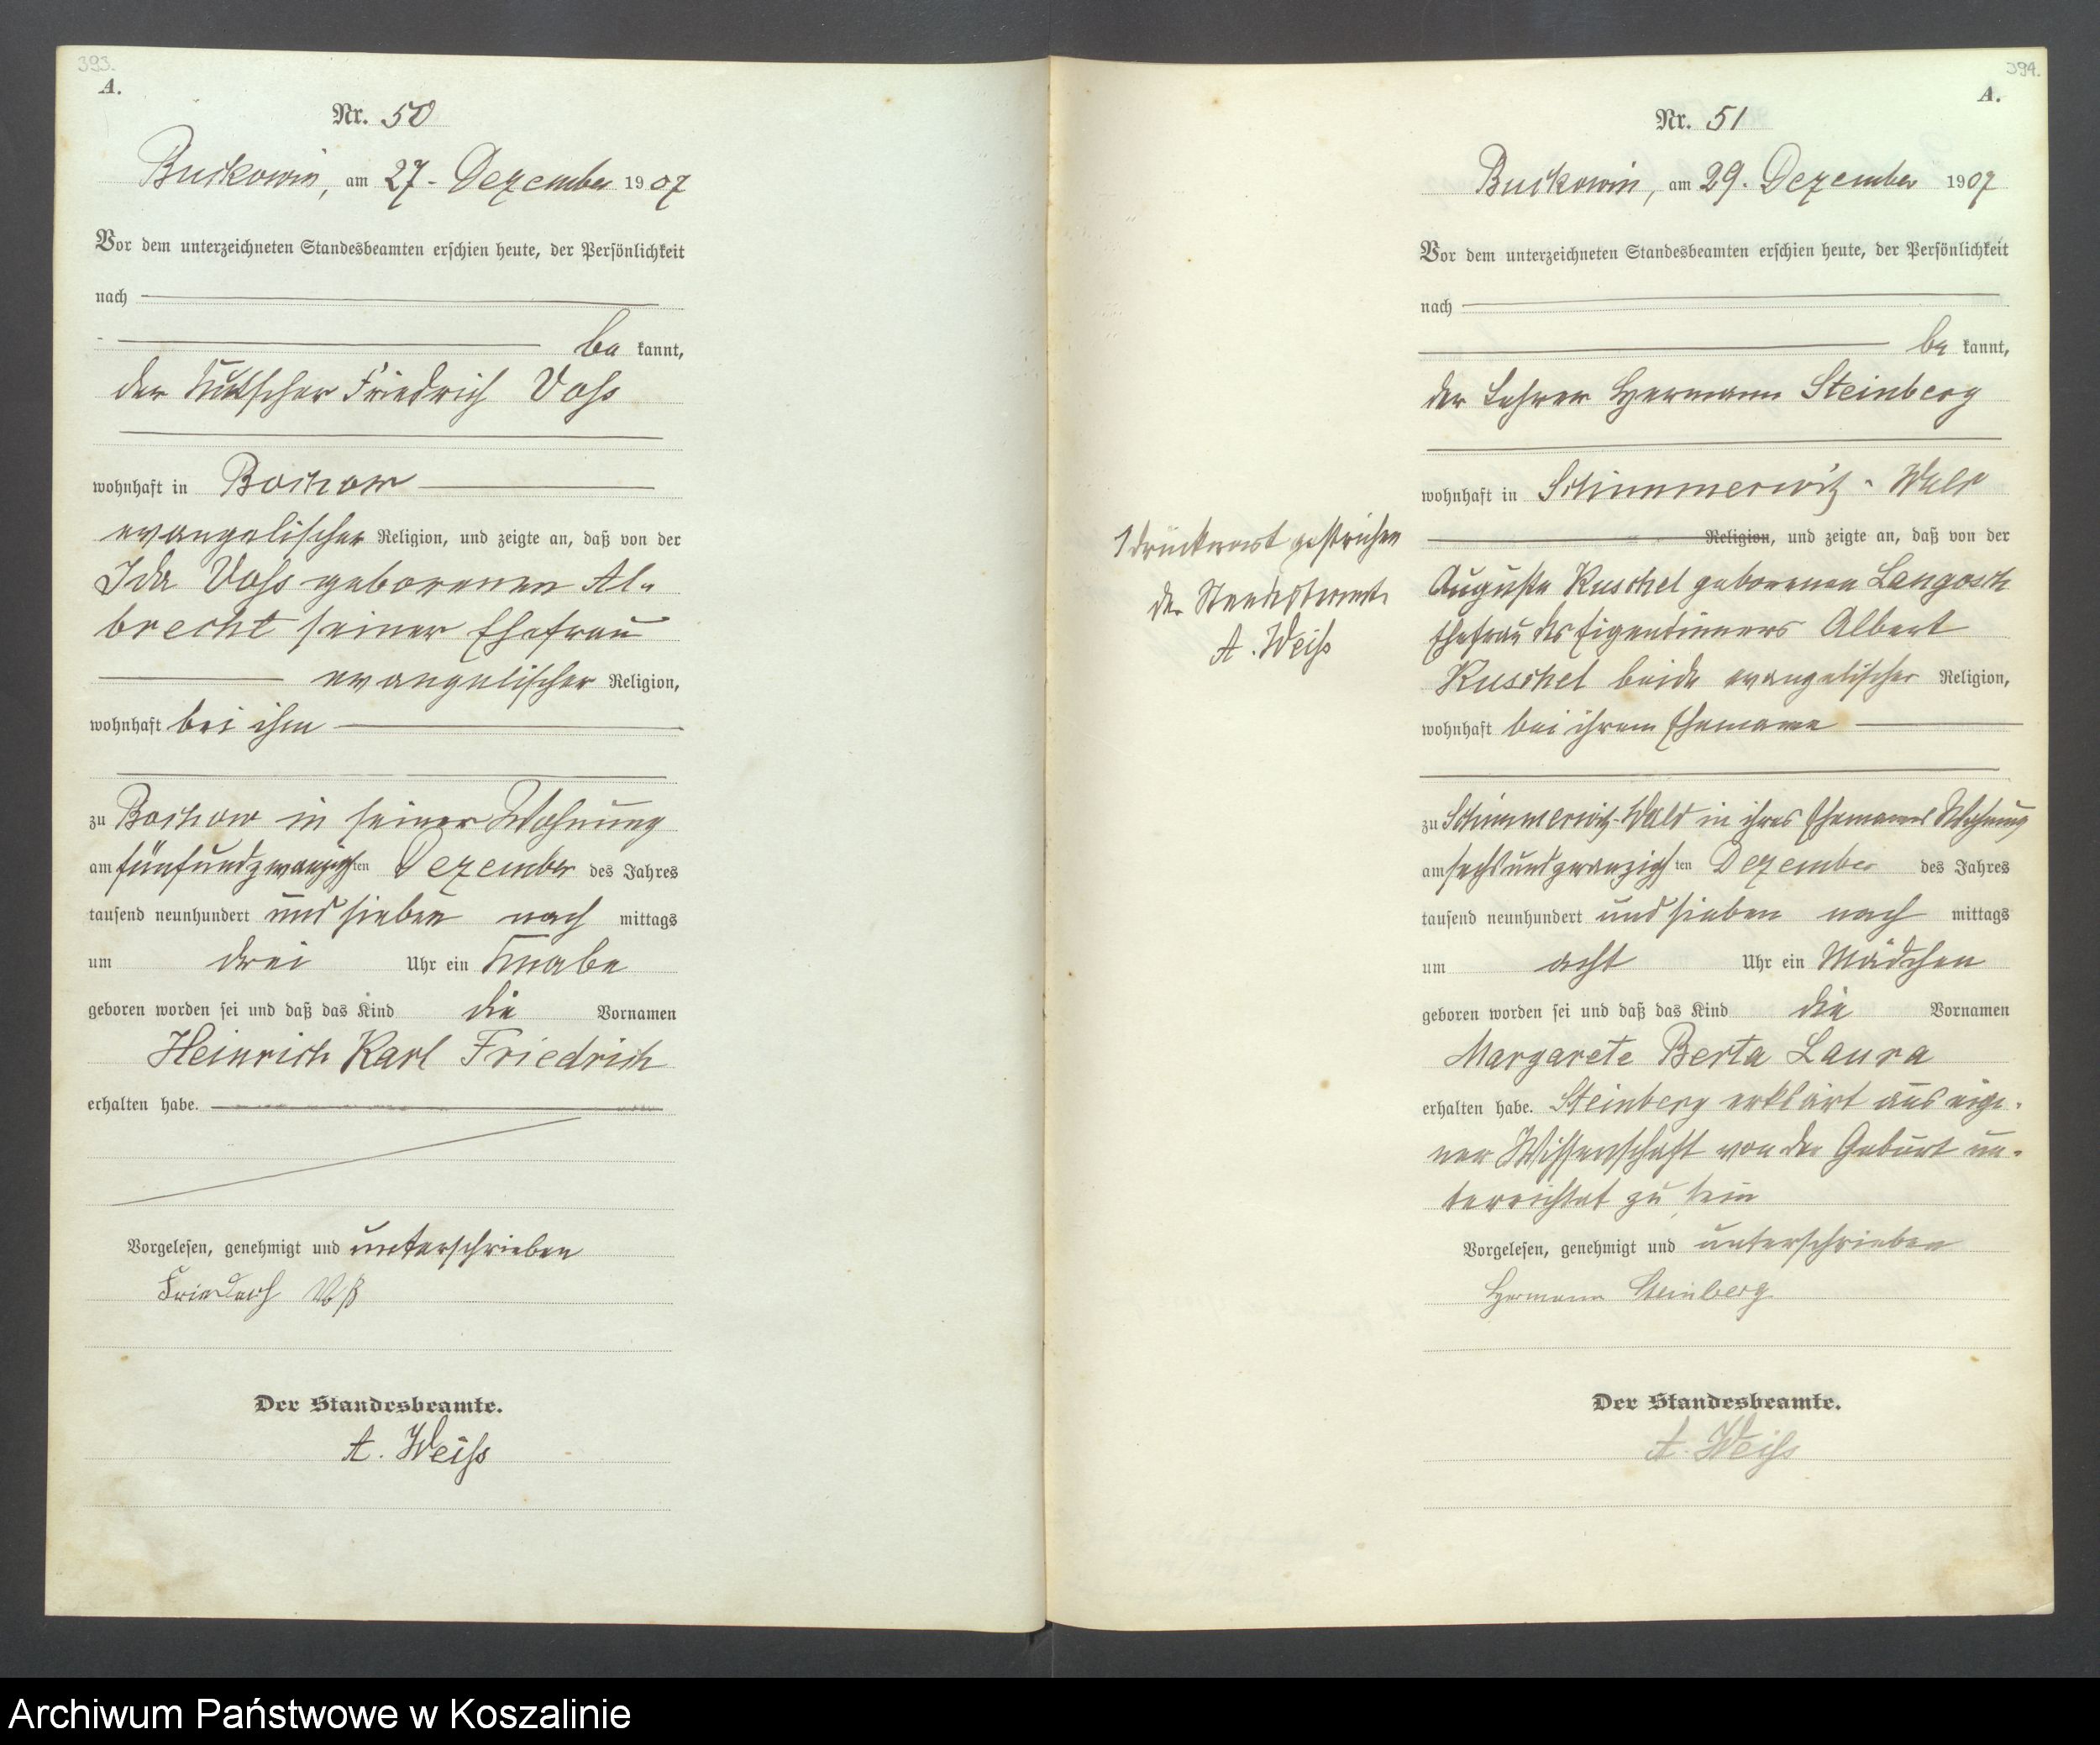 393.
A.
Nr. 50
Buckowin, am 27. Dezember 1907
Vor dem unterzeichneten Standesbeamten erschien heute, der Persönlichkeit
nach
be kannt,
der Kutscher Friedrich Voss
wohnhaft in Bochow
evangelischer Religion, und zeigte an, daß von der
Ida Voss geborenen Al-
brecht seiner Ehefrau
evangelischer Religion,
wohnhaft bei ihm
zu Bochow in seiner Wohnung
am fünfundzwanzigsten Dezember des Jahres
tausend neunhundert und sieben nach mittags
um drei Uhr ein Knabe
geboren worden sei und daß das Kind die Vornamen
Heinrich Karl Friedrich
erhalten habe.
Vorgelesen, genehmigt und unterschrieben
Friedrich Voß
Der Standesbeamte.
A. Weiss
394.
A.
Nr. 51
Buckowin, am 29. Dezember 1907
Vor dem unterzeichneten Standesbeamten erschien heute, der Persönlichkeit
nach
be kannt,
der Lehrer Hermann Steinberg
wohnhaft in Schimmerwitz-Wald
Religion, und zeigte an, daß von der
Auguste Kuschel geborenen Langosch
Ehefrau des Eigentümers Albert
Kuschel beide evangelischer Religion,
wohnhaft bei ihrem Ehemanne
zu Schimmerwitz-Wald in ihres Ehemannes Wohnung
am sechsundzwanzigsten Dezember des Jahres
tausend neunhundert und sieben nach mittags
um acht Uhr ein Mädchen
geboren worden sei und daß das Kind die Vornamen
Margarete Berta Laura
erhalten habe. Steinberg erklärt aus eige-
ner Wissenschaft von der Geburt un-
terrichtet zu sein
Vorgelesen, genehmigt und unterschrieben
Hermann Steinberg
Der Standesbeamte.
A. Weiss
1 Druckwort gestrichen
der Standesbeamte
A. Weiss
Archiwum Państwowe w Koszalinie